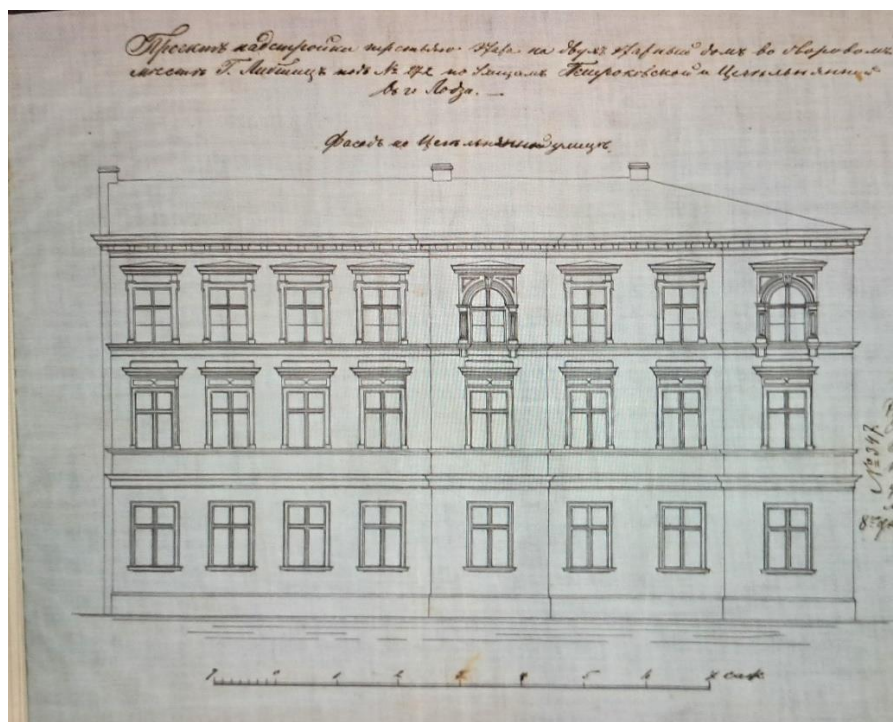 Проектъ надстройки третьяго этажа на двухъ этажный домъ во дворовомъ
мѣстѣ Г. Либшиц подъ № 272 по улицамъ Петроковской и Цегельнянной
въ г. Лодзи. —
Фасадъ по Цегельнянной улицѣ.
№ 347.
1 0 1 2 3 4 5 6 7 саж.